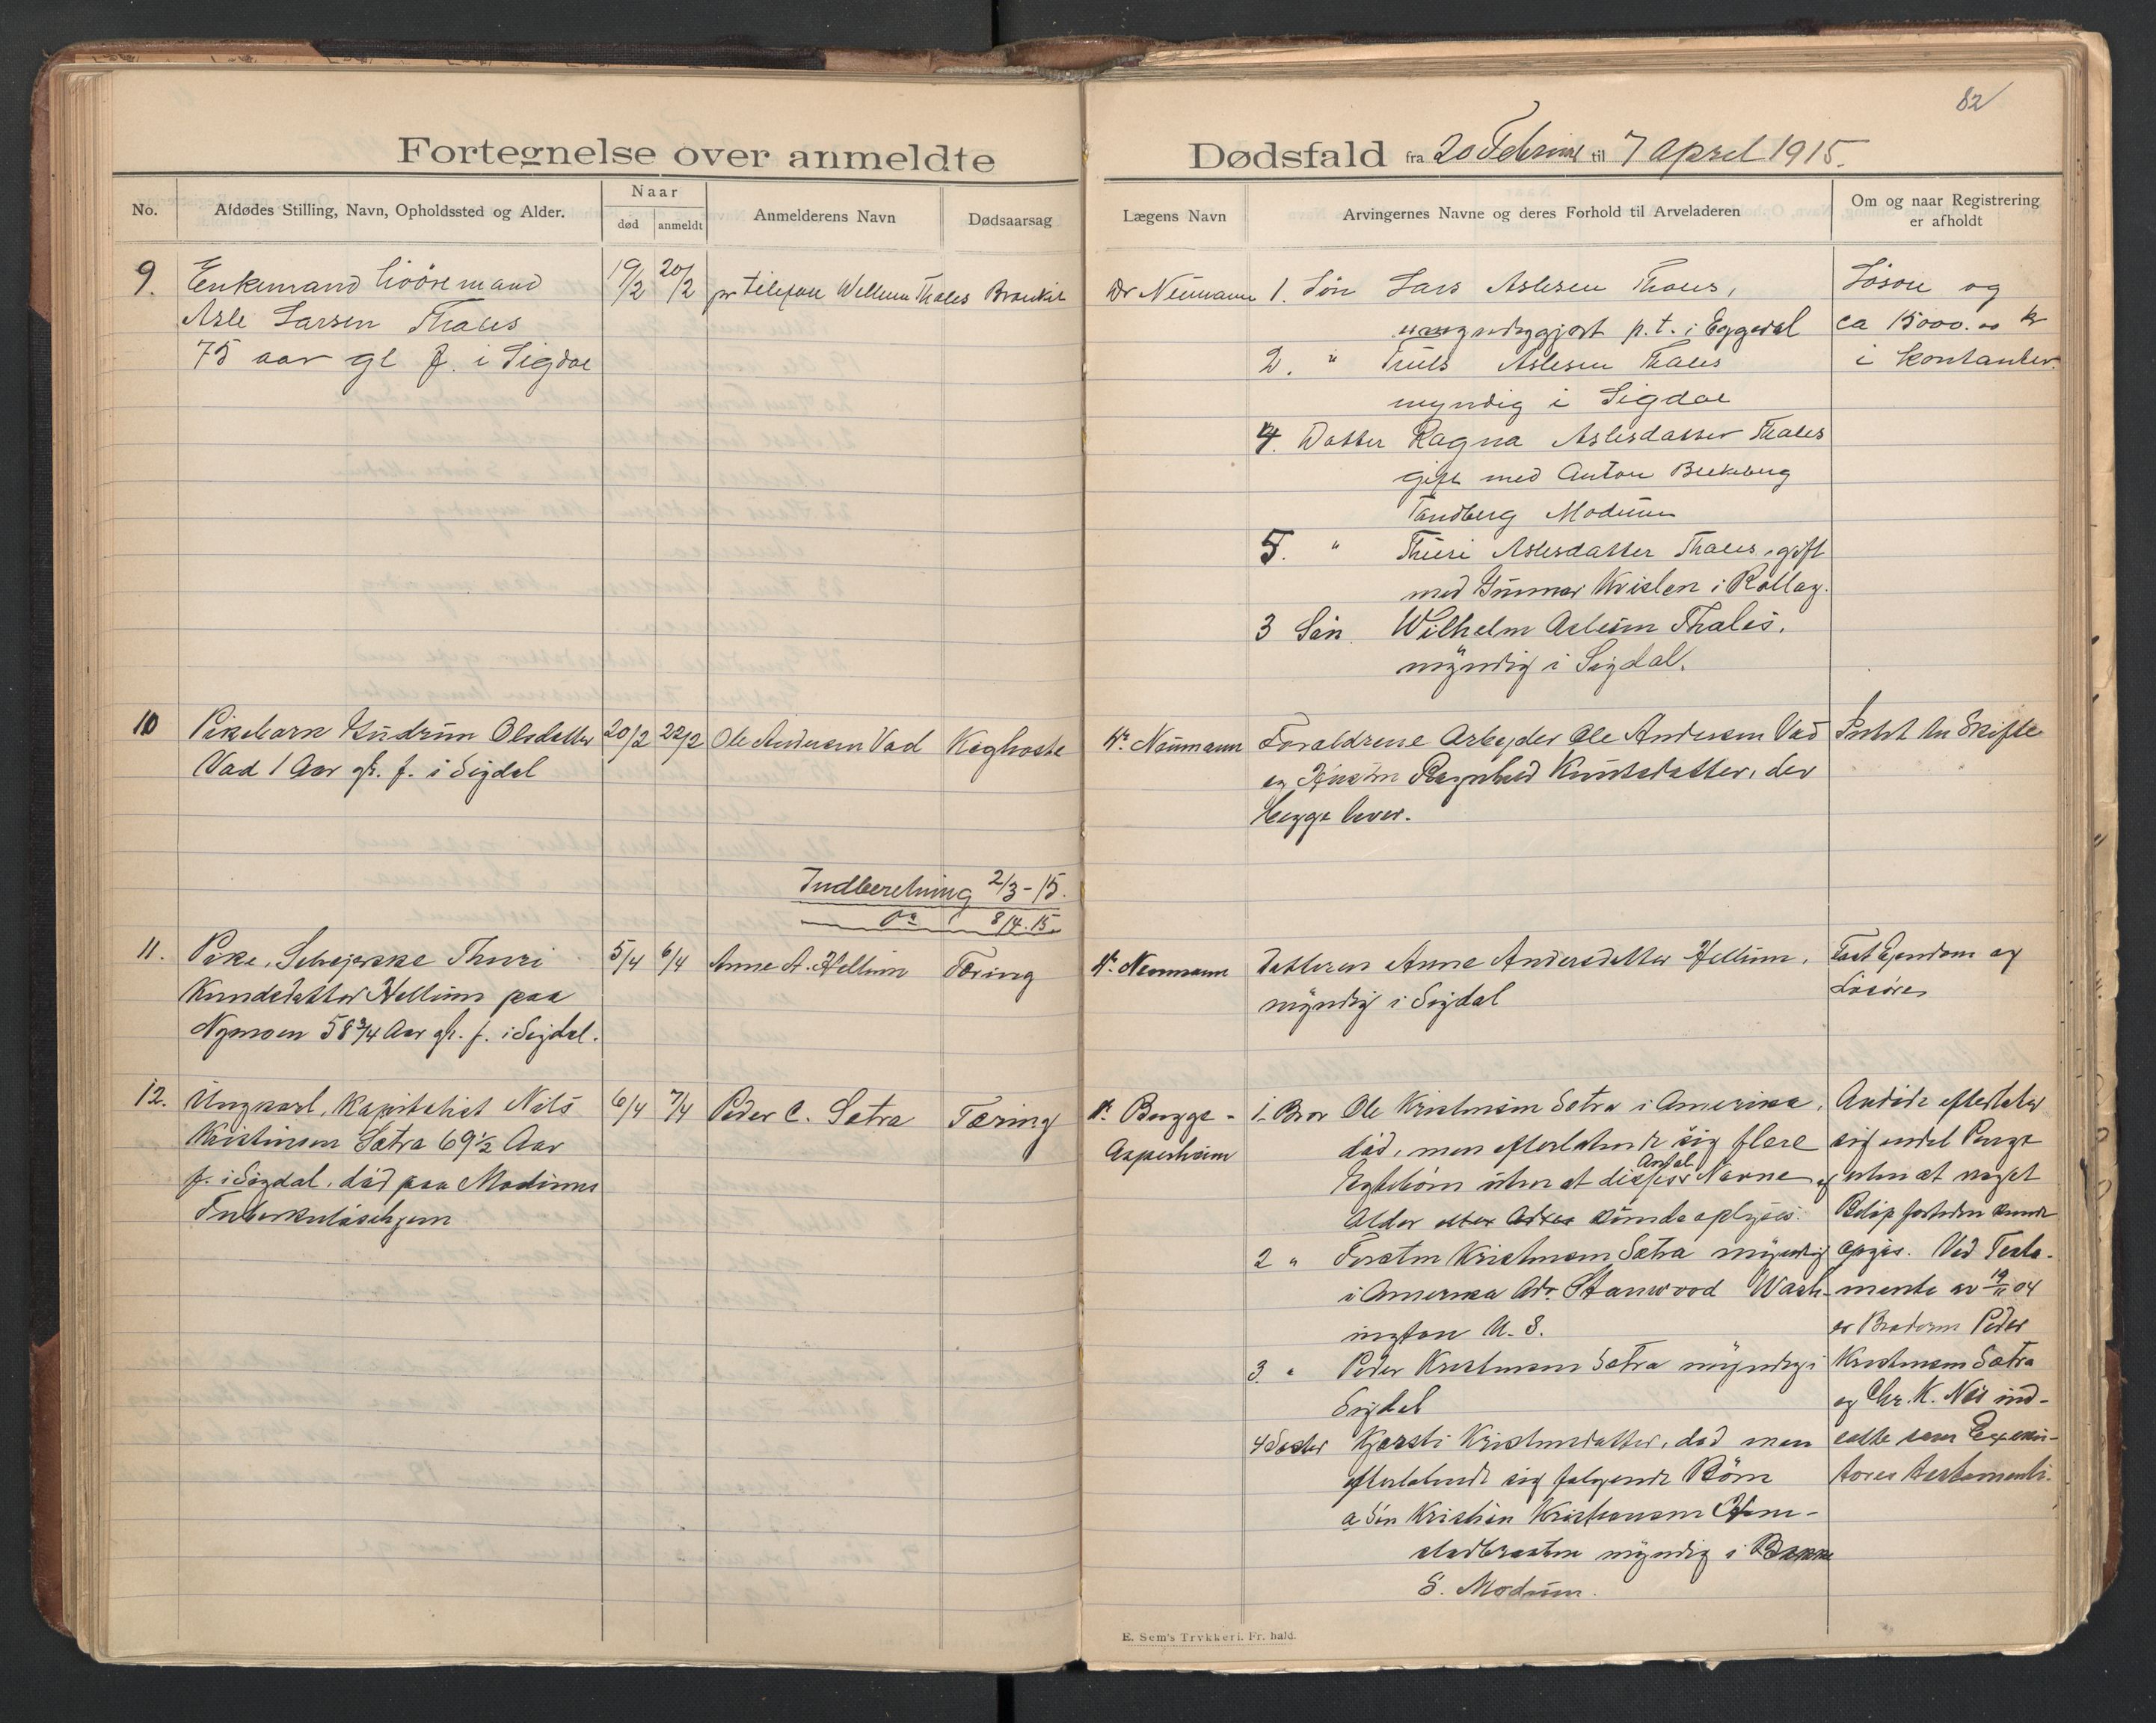 82
Fortegnelse over anmeldte
Dødsfald fra 20 Februar til 7 april 1915.
No.
Afdødes Stilling, Navn, Opholdssted og Alder.
Naar
død
anmeldt
Anmelderens Navn
Dødsaarsag
Lægens Navn
Arvingernes Navne og deres Forhold til Arveladeren
Om og naar Registrering
er afholdt
9. Enkemand 19/2 20/2 pr telefon Willum Thales Bronkit Dr Neumann
Asle Larsen Thales
75 aar gl f. i Sigdal
1. Søn Lars Aslesen Thales,
p.t. i Eggedal
2. " Truls Aslesen Thales
myndig i Sigdal
4. Datter Ragna Aslesdatter Thales
gift med Anton
Tandberg Modum
5. " Thuri Aslesdatter Thales, gift
med Gunnar i Rollag.
3 Søn Wilhelm Thales.
myndig i Sigdal.
Løsøre og
ca 15000.00 kr
i kontanter.
10 Pikebarn Gudrun Olsdatter 20/2 22/2 Ole Andersen Vad Kighoste Dr. Neumann
Vad 1 Aar gl. f. i Sigdal
Forældrene Arbeyder Ole Andersen Vad
og Ragnhild Knutsdatter, der
begge lever.
Intet til Skifte
Indberetning 2/3-15.
Do 8/4.15.
11. Pike, Thuri 5/4 6/4 Anne A. Hellum Tæring Dr. Neumann
Knudsdatter Hellum paa
Nymoen 58 3/4 Aar gl. f. i Sigdal.
Datteren Anne Andersdatter Hellum,
myndig i Sigdal
Fast Ejendom og
Løsøre
12. Ungkarl, Kapitalist Nils 6/4 7/4 Peder C. Sætra Tæring Dr. Bugge-
Kristensen Sætra 69 1/2 Aar
f. i Sigdal, død paa Modums
Tuberkuløsehjem
Asperheim
1. Bror Ole Kristensen Sætra i Amerika,
død, men efterladende sig flere
Ægtebørn uten at disses Antal Navne og
Alder kunde oplyses.
2 " Torsten Kristensen Sætra myndig
i Amerika Adr. Stanwood Wash-
ington U. S.
3. " Peder Kristensen Sætra myndig i
Sigdal
4 Søster Kjersti Kristensdatter, død men
efterladende sig følgende Børn
a Søn Kristian Kristiansen
myndig i
S. Modum.
Avdøde efterlater
sig endel Penge
uten at noget
Beløp forteden kunde
opgis. Ved Testa-
mente av 19/11 04
er Broderen Peder
Kristensen Sætra
og Chr. K. ind-
satte som Exeku-
tores testamenti.
E. Sem's Trykkeri. Fr. hald.